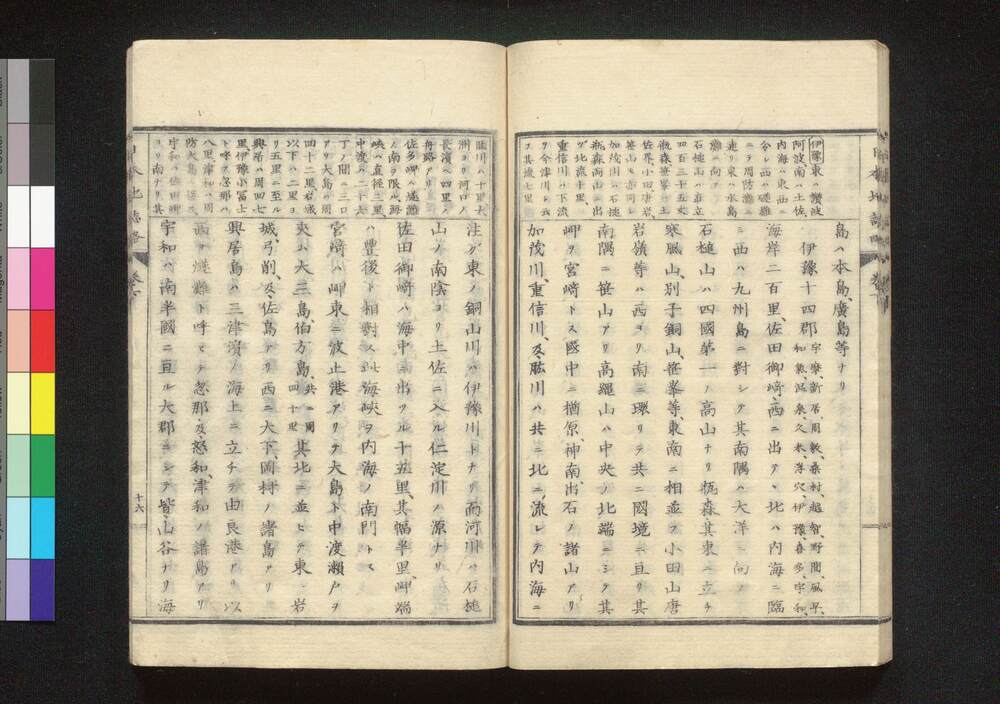 島ハ本島、廣島等ナリ
伊豫十四郡 宇摩、新居、周敷、桑村、越智、野間、風早、
和氣、温泉、久米、浮穴、伊豫、喜多、宇和、
海岸二百里、佐田御崎、西ニ出テ、北ハ内海ニ臨
ミ西ハ九州島ニ對シテ其南隅ハ大洋ニ向フ
石槌山ハ四國第一ノ高山ナリ瓶森其東ニ立チ
寒風山、別子銅山、笹峯等、東南ニ相並ヲ小田山唐
岩嶺等ハ西ヨリ南ニ環リテ共ニ國境ニ亘リ其
南隅ニ笹山アリ高繩山ハ中央ノ北端ニシテ其
岬ヲ宮崎トス國中ニ楢原、神南、出石ノ諸山アリ
加茂川、重信川、及肱川ハ共ニ北ニ流レテ内海ニ
伊豫東ハ讃岐
阿波南ハ土佐、
内海ハ東西ニ
分レ西ハ磯灘
ニシテ周防灘ニ
連リ東ハ水島
灘ニ向フ
石槌山ハ直立
四百三十五丈
瓶森笹峯ハ土
佐界小田唐岩
笹山モ亦然リ
瓶森両面山ニシ
加茂川ハ石槌
重信川ハ下流
ヲ今津川ト云
注グ東ノ銅山川ハ伊豫川トナリ面河川ハ石槌
山ノ南陰ヨリ土佐ニ入ル仁淀川ノ源ナリ
佐田御崎ハ海中ニ出ヅル十五里、其幅半里、岬端
ハ豊後ト相對ス此海峽ヲ内海ノ南門トス
宮崎ハ岬東ニ波止港アリテ大島ト中渡瀬戸ヲ
夾ハ大三島、伯方島、共ニ周
四十里 其北ニ並ビテ東ニ岩
城、弓削、及佐島アリ西ニ大下、岡村ノ諸島アリ
興居島ハ三津濱ノ海上ニ立チテ由良港アリ以
西ヲ燧灘ト呼ビテ忽那、及怒和、津和ノ諸島アリ
宇和ハ南半國ニ亘ル大郡ニシテ皆山谷ナリ海
肱川ハ十里大
洲ヨリ河口ノ
長濱ヘ四里ノ
舟路アリ
佐多岬ハ磯灘
ノ南ヲ限ル海
峽ハ直徑三里
中渡ハ二十六
丁ノ間ニ三口
アリ大島ハ周
四十二里岩城
以下ハ二里ヨ
リ五里ニ至ル
興居ハ周四七
里伊豫小冨士
ト呼フ忽那ハ
八里津和ハ周
防大島ニ接ス
宇和ハ佐田岬
ヨリ南ヲ
十六